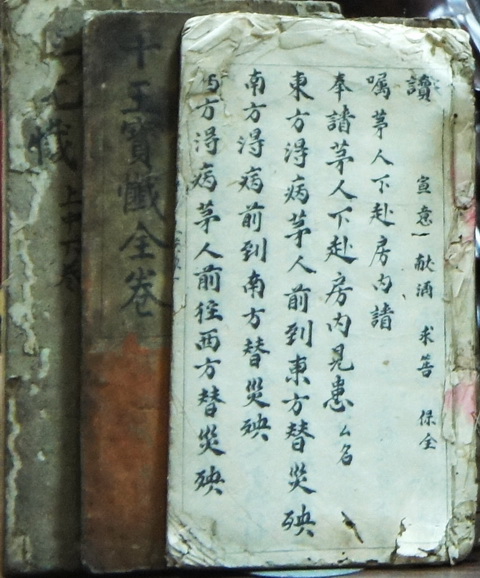 讀 宣意一 献酒 求筶 保全
嘱茅人下赴房内請
奉請茅人下赴房内見患厶名
東方得病茅人前到東方替災殃
南方得病前到南方替災殃
方得病茅人前往西方替災殃
十王寶懺全卷
懺上中下卷